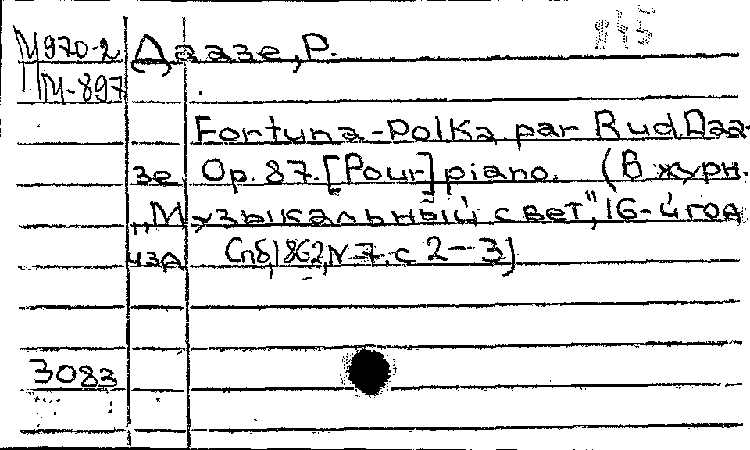 М970-2 Даазе, Р.
М-897
Fortuna-Polka par Rud Daa-
зе Op. 87. [Pour] piano. (В журн.
„Музыкальный свет", 16-й год
изд Спб, 1862, N 7. с 2-3)
3083